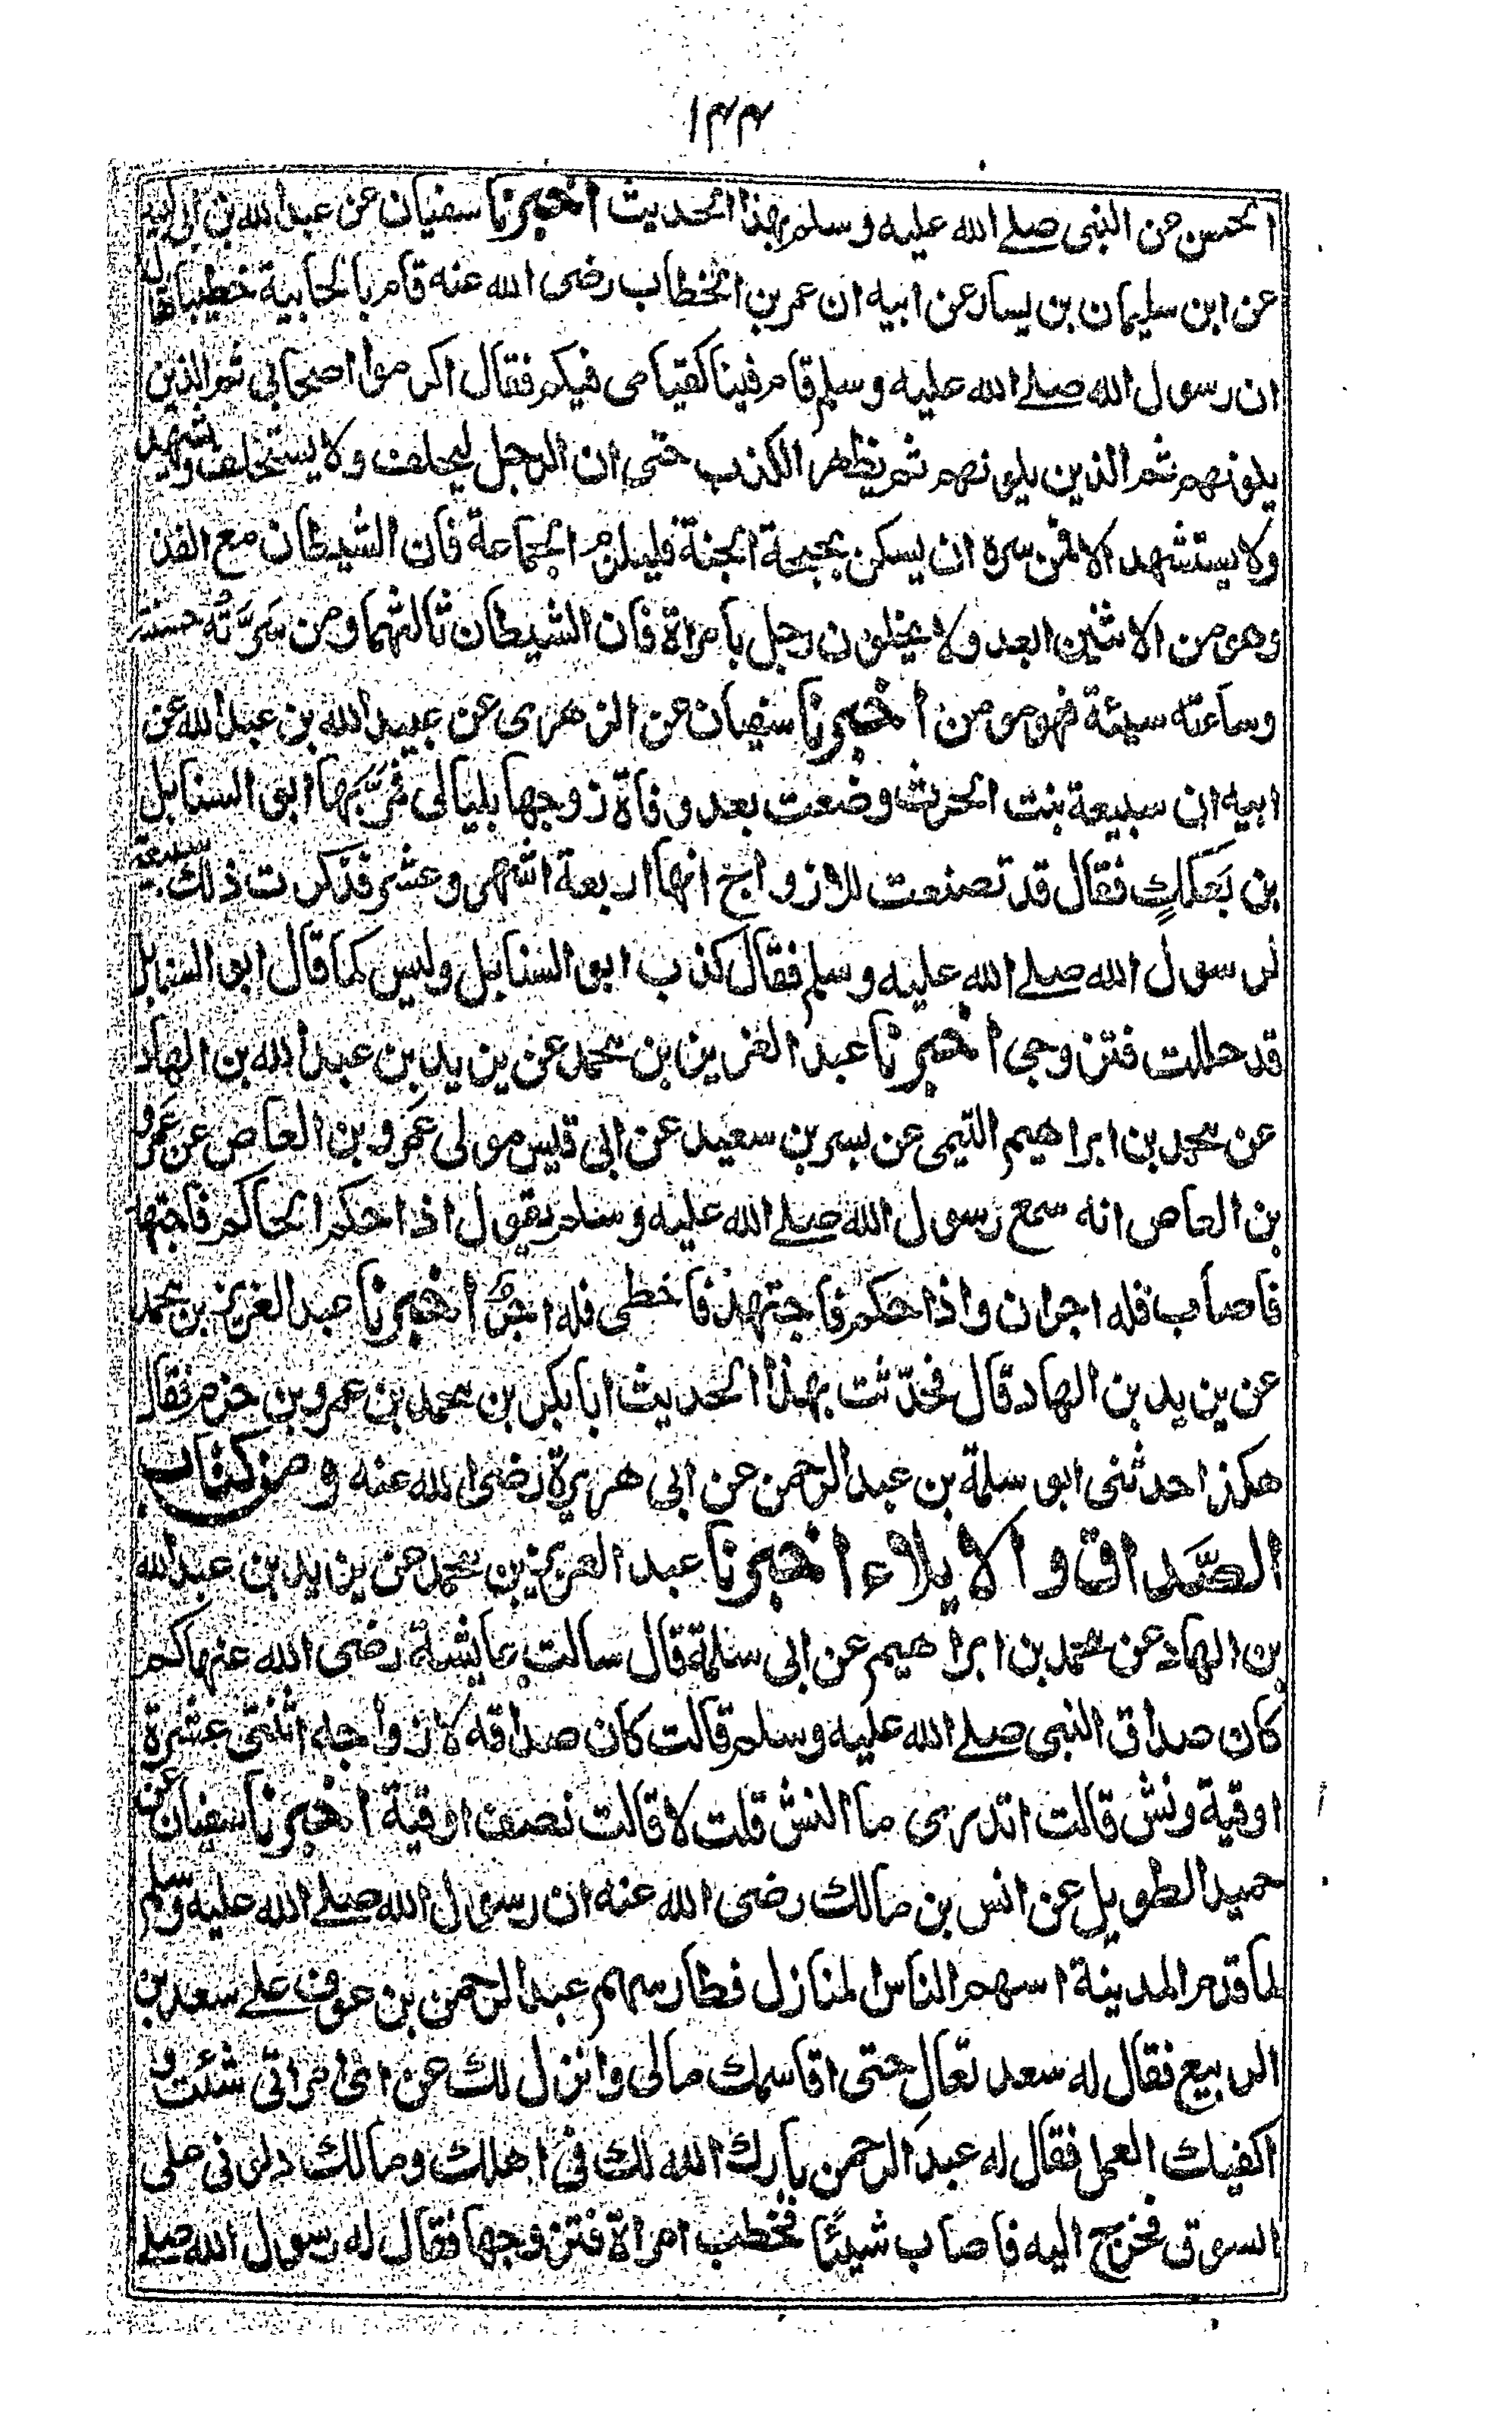 ۱۴۴
الحسن عن النبى صلے الله عليه وسلم بهذا الحديث اخبرنا سفيان عن عبد الله بن ابى لبيد
عن ابن سليمان بن يسار عن ابيه ان عمر بن الخطاب رضى الله عنه قام بالجابية خطيبا فقال
ان رسول الله صلے الله عليه وسلم قام فينا كقيامى فيكم فقال اكرموا اصحابى ثم الذين
يلونهم ثم الذين يلونهم ثم يظهر الكذب حتى ان الرجل ليحلف ولا يستحلف ويشهد
ولا يستشهد الا فمن سره ان يسكن بحبحة الجنة فليلزم الجماعة فان الشيطان مع الفذ
وهو من الاثنين ابعد ولا يخلون رجل بامراة فان الشيطان ثالثهما ومن سَرَّتْه حسنته
وساءته سيئة فهو مومن اخبرنا سفيان عن الزهرى عن عبيد الله بن عبد الله عن
ابيه ان سبيعة بنت الحرث وضعت بعد وفاة زوجها بليالى فمرّ بها ابو السنابل
بن بَعكك فقال قد تصنعت للازواج انها اربعة اشهر وعشر فذكرت ذلك سبيعة
لرسول الله صلے الله عليه وسلم فقال كذب ابو السنابل وليس كما قال ابو السنابل
قد حللت فتزوجى اخبرنا عبد العزيز بن محمد عن يزيد بن عبد الله بن الهاد
عن محمد بن ابراهيم التيمى عن بسر بن سعيد عن ابى قيس مولى عَمْرو بن العاص عن عَمْرو
بن العاص انه سمع رسول الله صلے الله عليه وسلم يقول اذا حكم الحاكم فاجتهد
فاصاب فله اجران واذا حكم فاجتهد فاخطى فله اجرٌ اخبرنا عبد العزيز بن محمد
عن يزيد بن الهاد قال فحدّثت بهذا الحديث ابا بكر بن محمد بن عمرو بن حزم فقال
هكذا حدثنى ابو سلمة بن عبد الرحمن عن ابى هريرة رضى الله عنه ومن كتاب
الصَّداق والايلاء اخبرنا عبد العزيز بن محمد عن يزيد بن عبد الله
بن الهاد عن محمد بن ابراهيم عن ابى سلمة قال سالت عايشة رضى الله عنها كم
كان صداق النبى صلے الله عليه وسلم قالت كان صداقه لازواجه اثنتى عشرة
اوقية ونش قالت اتدرى ما النش قلت لا قالت نصف اوقية اخبرنا سفيان عن
حميد الطويل عن انس بن مالك رضى الله عنه ان رسول الله صلے الله عليه وسلم
لما قدم المدينة اسهم الناس المنازل فطار سهم عبد الرحمن بن عوف علے سعد بن
الربيع فقال له سعد تعال حتى اقاسمك مالى وانزل لك عن اى امراتى شئت و
اكفيك العمل فقال له عبد الرحمن بارك الله لك فى اهلك ومالك دلونى على
السوق فخرج اليه فاصاب شيئًا فخطب امراة فتزوجها فقال له رسول الله صلے